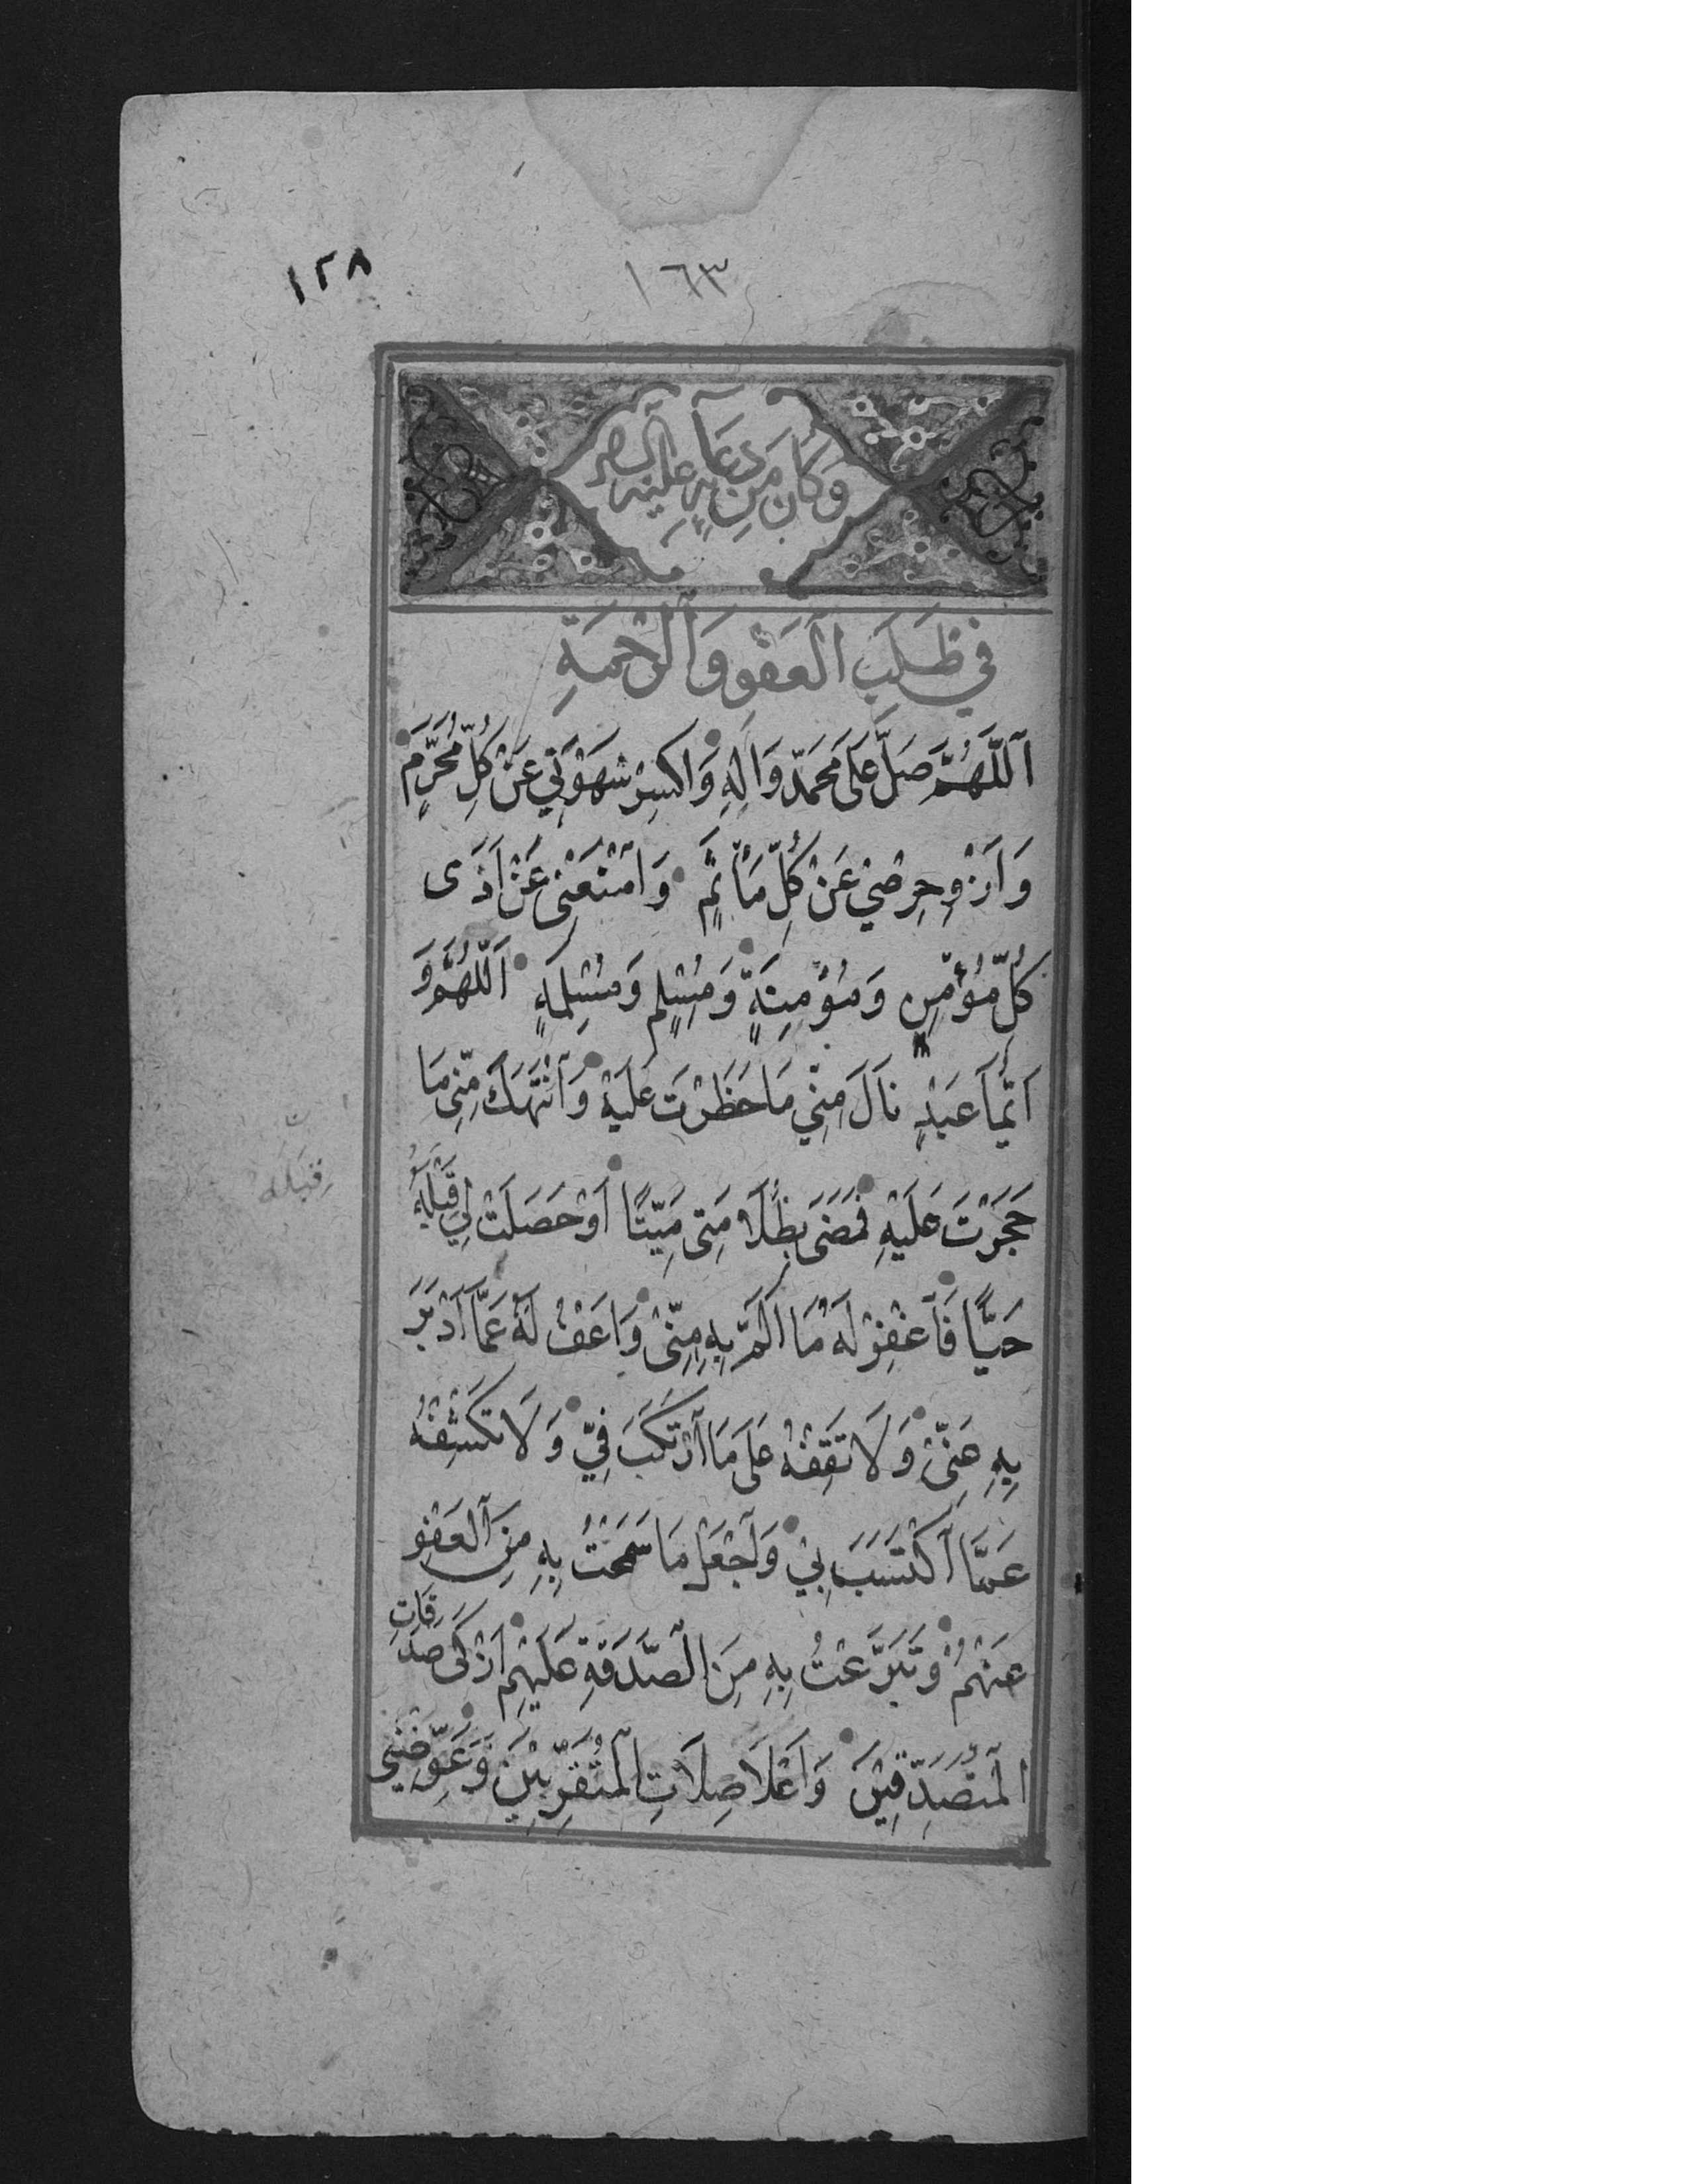 ١٢٨
١٦٣
وَكَانَ مِنْ دُعَآئِهِ عَلَيْهِ
فِي طَلَبِ الْعَفْوِ وَالرَّحْمَةِ
اَللَّهُمَّ صَلِّ عَلَى مُحَمَّدٍ وَاٰلِهِ وَاكْسِرْ شَهْوَتِي عَنْ كُلِّ مُحَرَّمٍ
وَازْوِ حِرْصِي عَنْ كُلِّ مَأْثَمٍ وَامْنَعْنِي عَنْ اَذَى
كُلِّ مُؤْمِنٍ وَمُؤْمِنَةٍ وَمُسْلِمٍ وَمُسْلِمَةٍ اَللّٰهُمَّ وَ
اَيُّمَا عَبْدٍ نَالَ مِنِّي مَا حَظَرْتَ عَلَيْهِ وَانْتَهَكَ مِنِّي مَا
حَجَرْتَ عَلَيْهِ فَمَضَى بِظُلَامَتِي مَيِّتًا اَوْ حَصَلَتْ لِي قِبَلَهُ
قِبَلَه
حَيًّا فَاغْفِرْ لَهُ مَا اَلَمَّ بِهِ مِنِّي وَاعْفُ لَهُ عَمَّا اَدْبَرَ
بِهِ عَنِّي وَلَا تَقِفْهُ عَلَى مَا ارْتَكَبَ فِيَّ وَلَا تَكْشِفْهُ
عَمَّا اكْتَسَبَ بِي وَاجْعَلْ مَا سَمَحْتُ بِهِ مِنَ الْعَفْوِ
عَنْهُمْ وَتَبَرَّعْتُ بِهِ مِنَ الصَّدَقَةِ عَلَيْهِمْ اَزْكَى صَدَقَاتِ
الْمُتَصَدِّقِينَ وَاَعْلَا صِلَاتِ الْمُتَقَرِّبِينَ وَعَوِّضْنِي